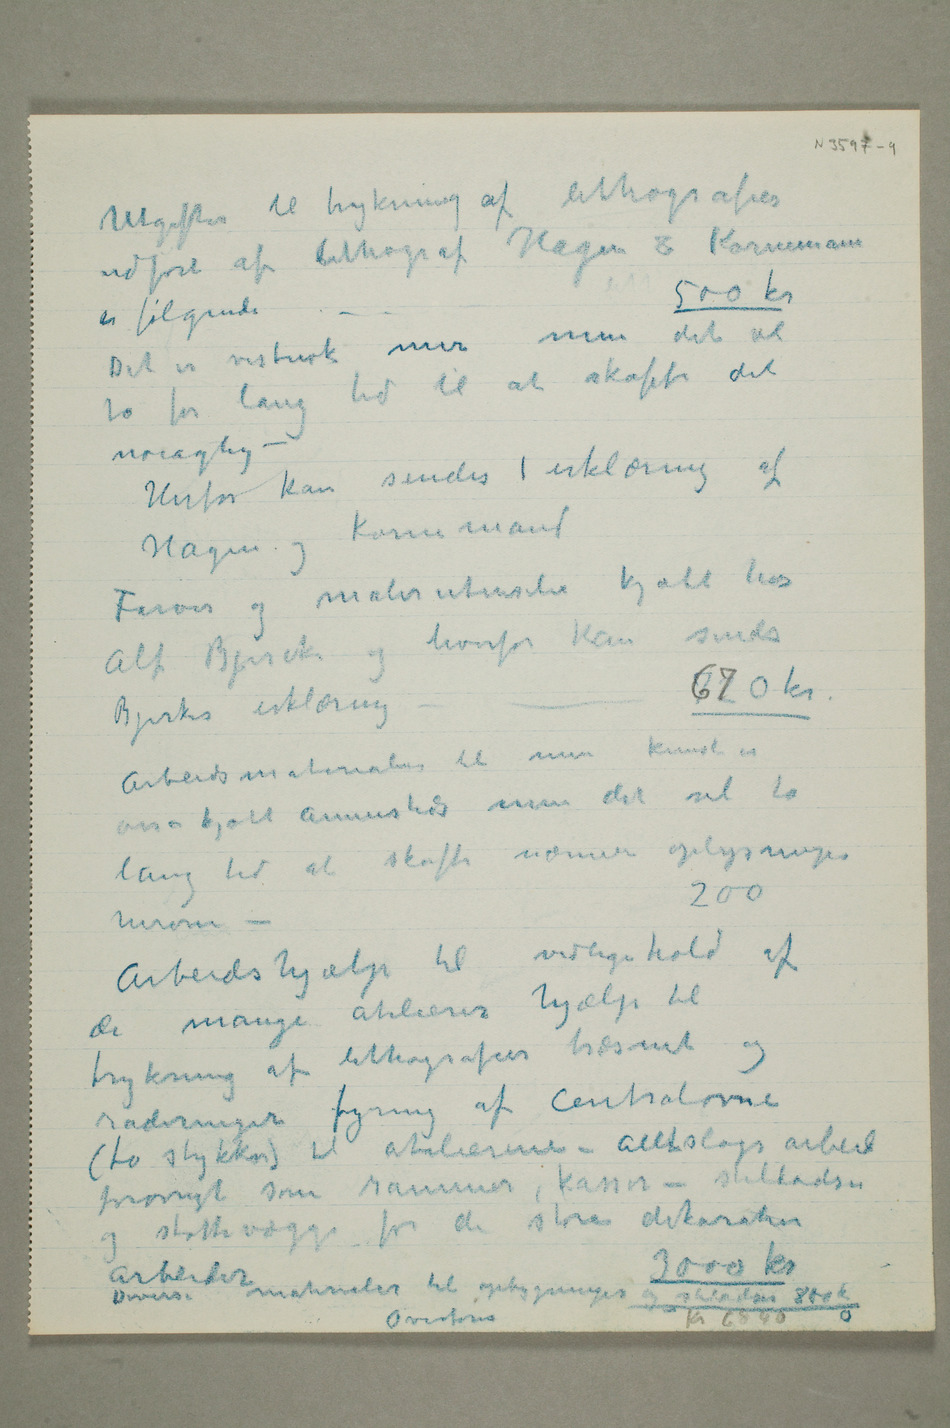 N 3597-9
Utgifter til trykning af lithografier
udført af lithograf Hagen & Kornemann
er følgende 500 kr
Det er vistnok mer men det vil
ta for lang tid til at skaffe det
nøiagtig –
Herfor kan sendes 1 erklæring af
Hagen og Kornemand
Farver og maler utensilier kjøbt hos
Alf Bjercke og hvorfor kan sendes
Bjerkes erklæring – 670 kr.
Arbeidsmaterialer til min kunst er
også kjøbt annensteds men det vil ta
lang tid at skaffe nærmere oplysninger
herom – 200
Arbeidshjælp til vedligehold af
de mange atelierer hjælp til
trykning af lithografier træsnit og
raderinger fyring af Centralovne
(to stykker) til atelierene – alleslags arbeid
forøvrigt som rammer, kasser – stilladser
og støttevægge for de store dekorative
arbeider 3000 kr
Diverse materialer til opbygninger og stilladser 800 k
Overføres kr 6840 0